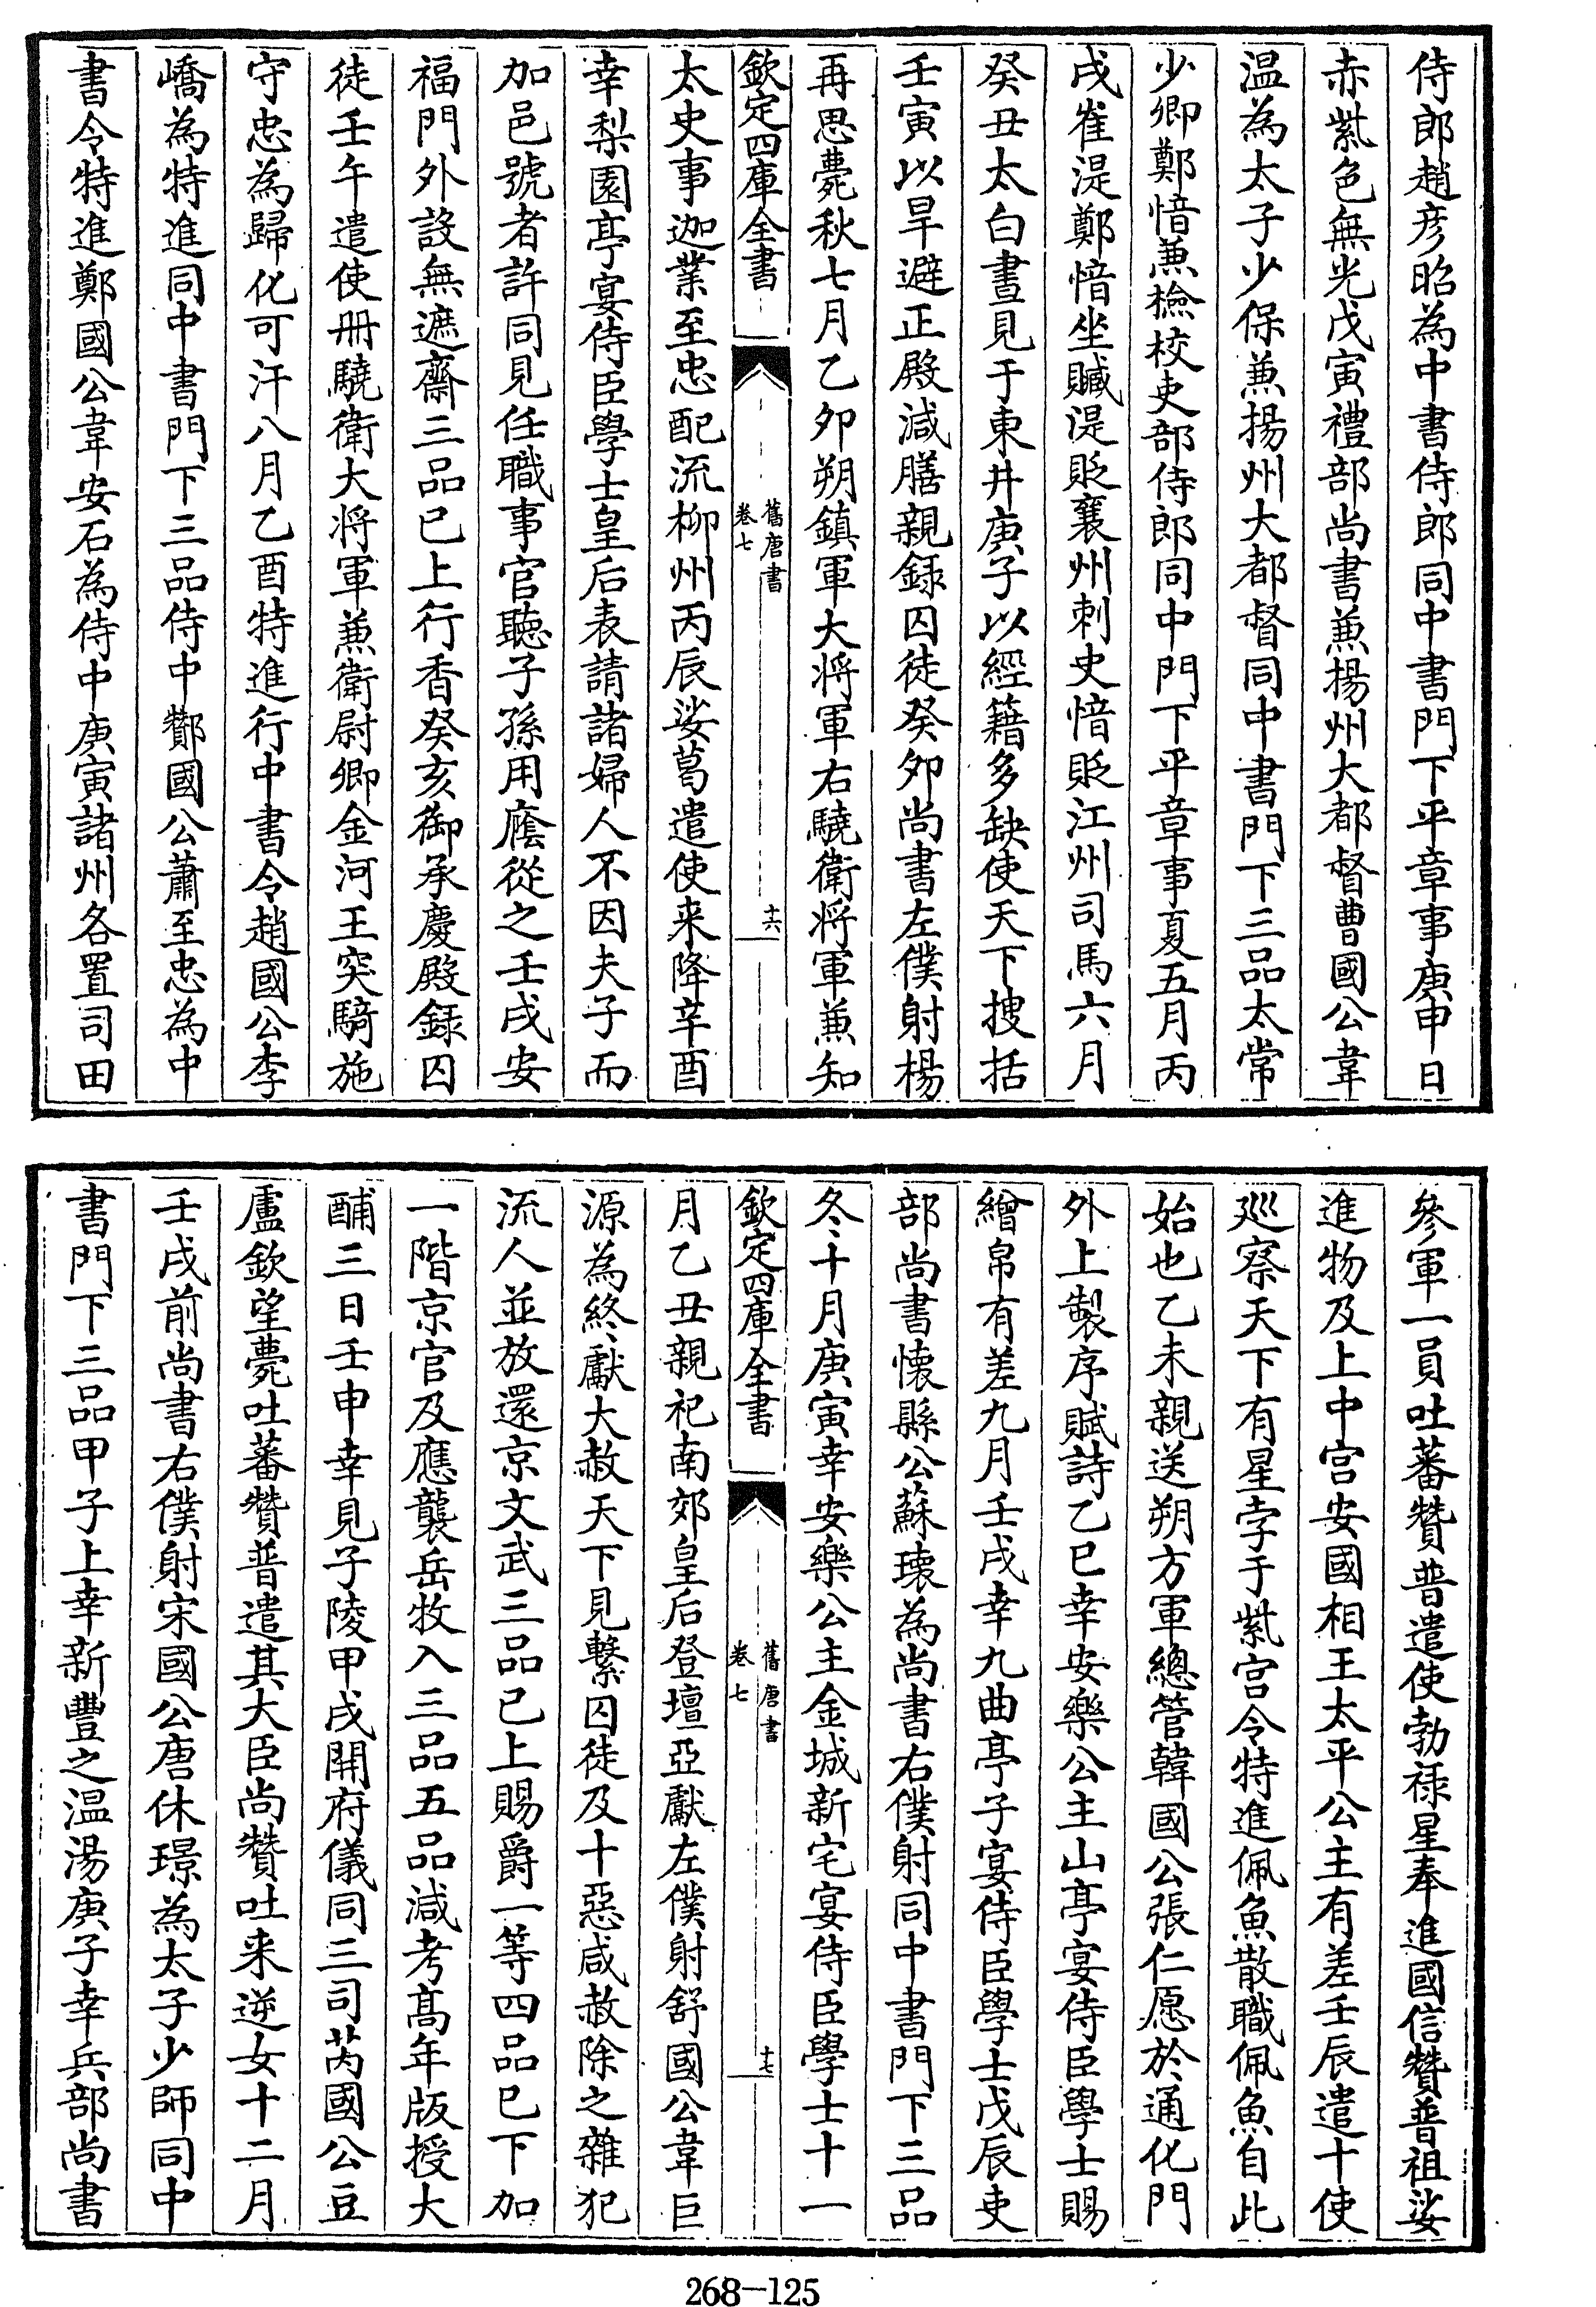 侍郎趙彦昭為中書侍郎同中書門下平章事庚申日
赤紫色無光戊寅禮部尚書兼揚州大都督曹國公韋
温為太子少保兼揚州大都督同中書門下三品太常
少卿鄭愔兼檢校吏部侍郎同中門下平章事夏五月丙
戌崔湜鄭愔坐贓湜貶襄州刺史愔貶江州司馬六月
癸丑太白晝見于東井庚子以經籍多缺使天下搜括
壬寅以旱避正殿減膳親録囚徒癸夘尚書左僕射楊
再思薨秋七月乙夘朔鎮軍大将軍右驍衛将軍兼知
欽定四庫全書
舊唐書
卷七
十六
太史事迦業至忠配流柳州丙辰娑葛遣使来降辛酉
幸梨園亭宴侍臣學士皇后表請諸婦人不因夫子而
加邑號者許同見任職事官聽子孫用廕從之壬戌安
福門外設無遮齋三品已上行香癸亥御承慶殿録囚
徒壬午遣使冊驍衛大将軍兼衛尉卿金河王突騎施
守忠為歸化可汗八月乙酉特進行中書令趙國公李
嶠為特進同中書門下三品侍中酇國公蕭至忠為中
書令特進鄭國公韋安石為侍中庚寅諸州各置司田
參軍一員吐蕃贊普遣使勃禄星奉進國信贊普祖娑
進物及上中宫安國相王太平公主有差壬辰遣十使
廵察天下有星孛于紫宫令特進佩魚散職佩魚自此
始也乙未親送朔方軍總管韓國公張仁愿於通化門
外上製序賦詩乙巳幸安樂公主山亭宴侍臣學士賜
繒帛有差九月壬戌幸九曲亭子宴侍臣學士戊辰吏
部尚書懷縣公蘇瓌為尚書右僕射同中書門下三品
冬十月庚寅幸安樂公主金城新宅宴侍臣學士十一
欽定四庫全書
舊唐書
卷七
十七
月乙丑親祀南郊皇后登壇亞獻左僕射舒國公韋巨
源為終獻大赦天下見繫囚徒及十惡咸赦除之雜犯
流人並放還京文武三品已上賜爵一等四品已下加
一階京官及應襲岳牧入三品五品減考髙年版授大
酺三日壬申幸見子陵甲戌開府儀同三司芮國公豆
盧欽望薨吐蕃贊普遣其大臣尚贊吐来逆女十二月
壬戌前尚書右僕射宋國公唐休璟為太子少師同中
書門下三品甲子上幸新豐之温湯庚子幸兵部尚書
268-125